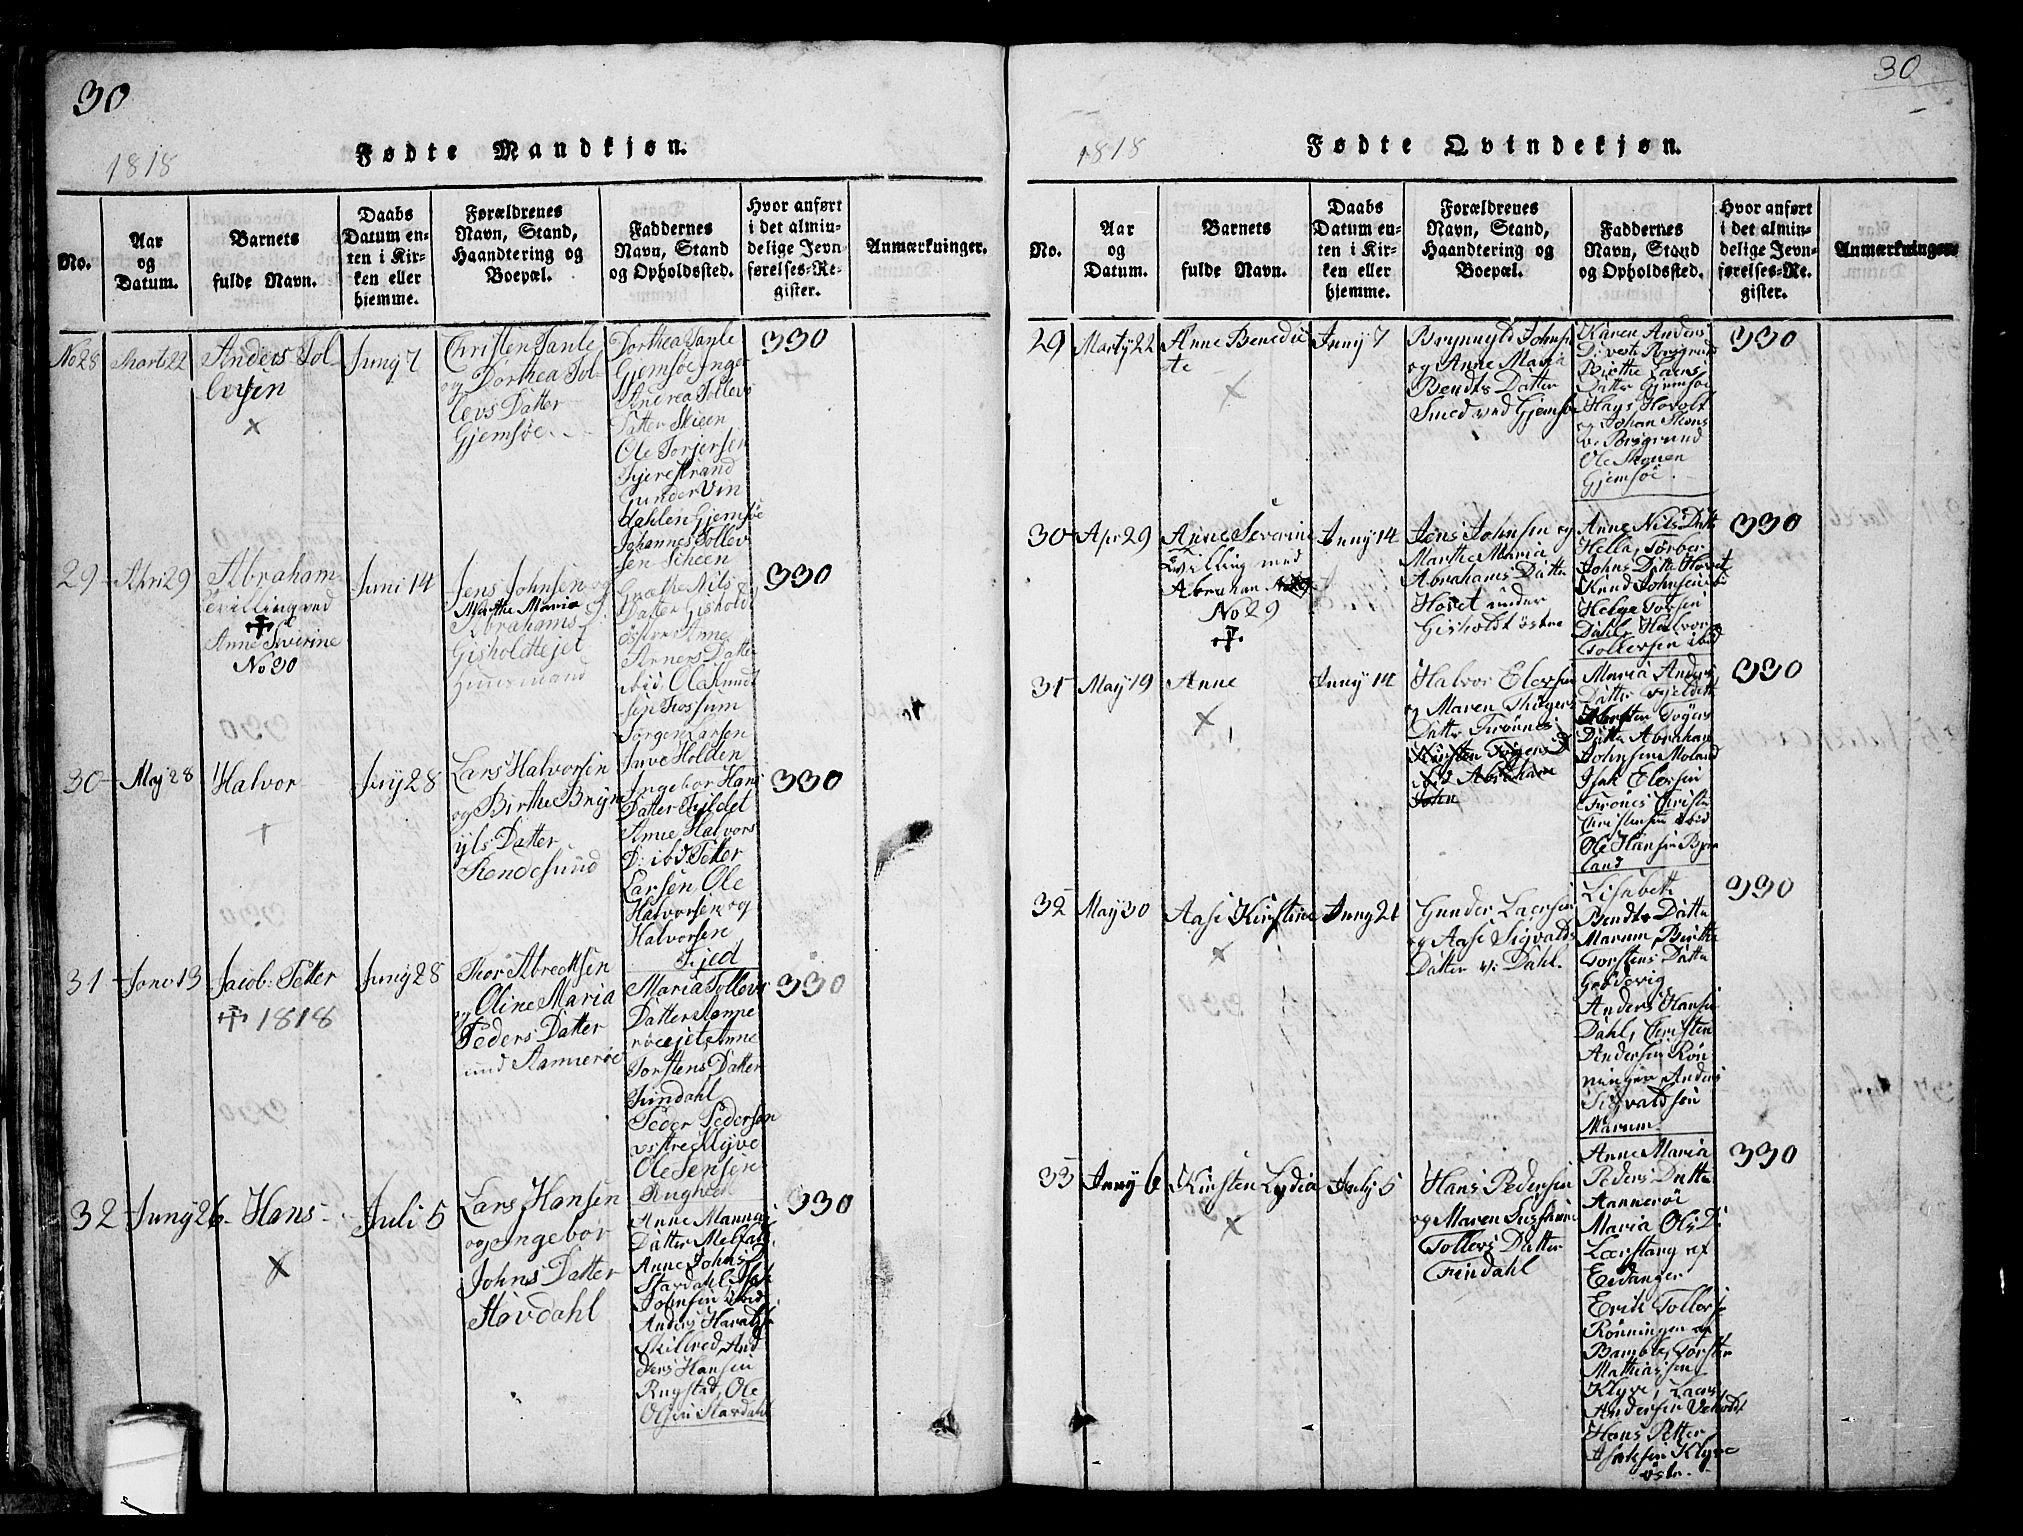 30
Fødte Mandkjøn.
1818
No.
Aar
og
Datum.
Barnets
fulde Navn.
Daabs
Datum en-
ten i Kir-
ken eller
hjemme.
Forældrenes
Navn, Stand,
Haandtering og
Boepæl.
Faddernes
Navn, Stand
og Opholdssted.
Hvor anført
i det almin-
delige Jevn-
førelses-Re-
gister.
Anmærkninger.
No 28
Marti 22
Anders Tol-
levsen
Juny 7
Christen Janle
og Dorthea Tol-
levs Datter
Gjemsøe
Dorthea Janle
Gjemsøe Inger
Andrea Tollevs
Datter Skeen
Ole Torjersen
Fjerestrand
Gunder Vin
dahlen Gjemsøe
Johannes Tollev
sen Scheen
330
29
Apri 29
Abraham
Tvilling ved
Anne Siverine
No 30
Juni 14
Jens Johnsen og
Marthe Maria
Abrahams D
Gisholdtejet
Huusmand
Grethe Nils
Datter Gisholdt
østre Anne
Arners Datter
ibid, Ola Knud
sen Fossum
Jørgen Larsen
330
30
Maj 28
Halvor
Juny 28
Lars Halvorsen
og Birthe Bryn
yls Datter
Rendesund
Juve Holden
Ingebor Hans
Datter Fjeldet
Anne Halvors
D: ibd Petter
Larsen Ole
Halvorsen og
Halvorsen
Fjed
330
31
Juni 13
Jacob Petter
1818
Juny 28
Thor Abrechtsen
og Oline Maria
Peders Datter
und Aannerøe
Maria Tollevs
Datter Kampe
røeejet, Anne
Torstens Datter
Findahl
Peder Pedersen
vestre Klyve
Ole Jensen
Rughedt
330
32
Juny 26
Hans
Juli 5
Lars Hansen
og Ingebor
Johns Datter
Støvdahl
Anne
Datter Melfald
Anne Johns
Stavdahl
Johnsen ibid
Anders Haralds
Skilbred, And
ders Hansen
Rugstad, Ole
Olsen Stavdahl
330
30
Fødte Qvindekjøn.
1818
No.
Aar
og
Datum.
Barnets
fulde Navn.
Daabs
Datum en-
ten i Kir-
ken eller
hjemme.
Forældrenes
Navn, Stand,
Haandtering og
Boepæl.
Faddernes
Navn, Stand
og Opholdssted.
Hvor anført
i det almin-
delige Jevn-
førelses-Re-
gister.
Anmærkninger.
29
Marty 22
Anne Benedic
te
Juny 7
Brynnyld Johnse
og Anne Maria
Bendts Datter
Smed ved Gjemsøe
Karen Anders
D: vestre Porsgrund
Birthe Laers
Datter Gjemsøe
Hays Hovolt
og Johan Skons
v: Porsgrund
Ole Skonen
Gjemsøe.
330
30
Apr 29
Anne Severine
Tvilling med
Abraham
No 29
Juny 14
Jens Johnsen og
Marthe Maria
Abrahams Datter
Hovet under
Gisholdt østre
Anne Nils Datt
Hella, Torber
Johns Datt Hovet
Knud Johnsen ibi
Helge Torsen
Dahl, Halvor
Tollevsen ibid
330
31
May 19
Anne
Juny 14
Halvor Elovsen
og Maren Thøgers
Datter Frönnes
Maria Anders
Datter Fjeldet
Kirsten Tøgers
Datter Abraham
Johnsen Moland
Isak Elovsen
Frönes Christen
Christensen ibid
Ole Hansen Bjer
land
330
32
May 30
Aase Kirstine
Juny 21
Gunder Laersen
og Aase Sigvalds
Datter v: Dahl.
Lisabeth
Bendts Datter
Marum, Birthe
Torstens Datter
Grødevig
Anders Hansen
Dahl, Christen
Andersen Røn
ningen, Anders
Sigvaldsen
Marum.
330
33
Juny 6
Kirsten Lydia
July 5
Hans Pedersen
og Maren Susanne
Tollevs Datter
Findahl
Anne Maria
Peders Datter
Aannerøe
Maria Ols D:
Lærstang af
Eidanger
Erik Tollevse
Rönningen af
Bamble, Torsten
Mathiassen
Klyve, Laers
Andersen Veholdt
Hans Petter
Isaksen Klyve
østre.
330